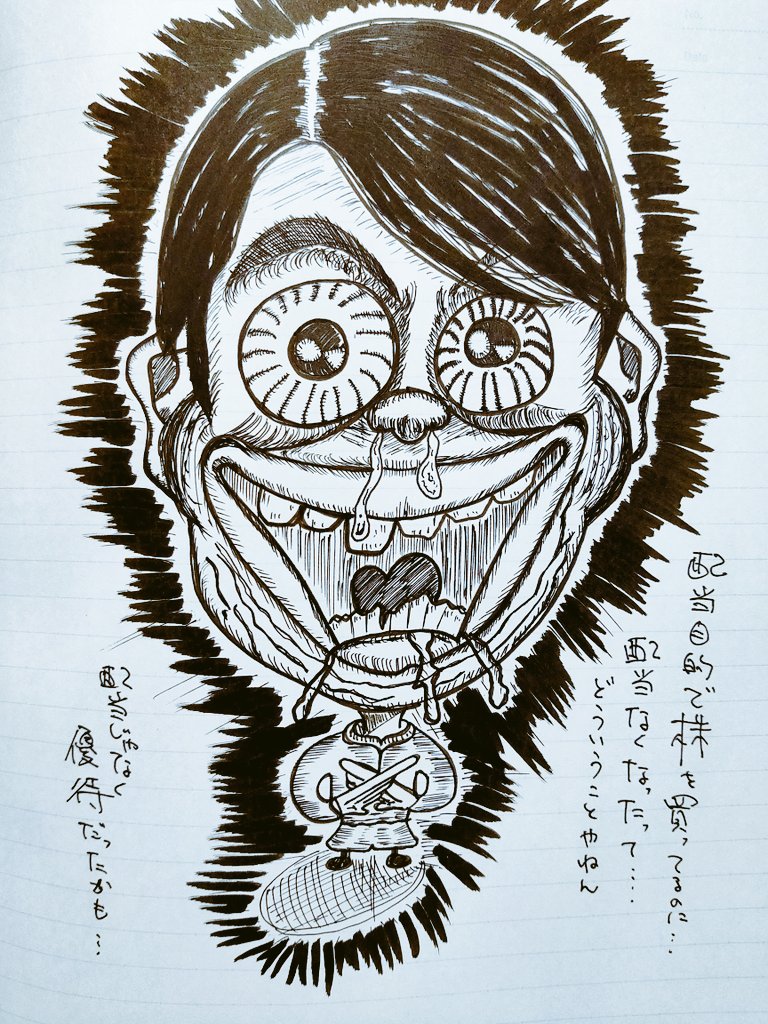 配当目的で株を買ってるのに…
配当なくなったって….
どういうことやねん
配当じゃなく
優待だったかも…